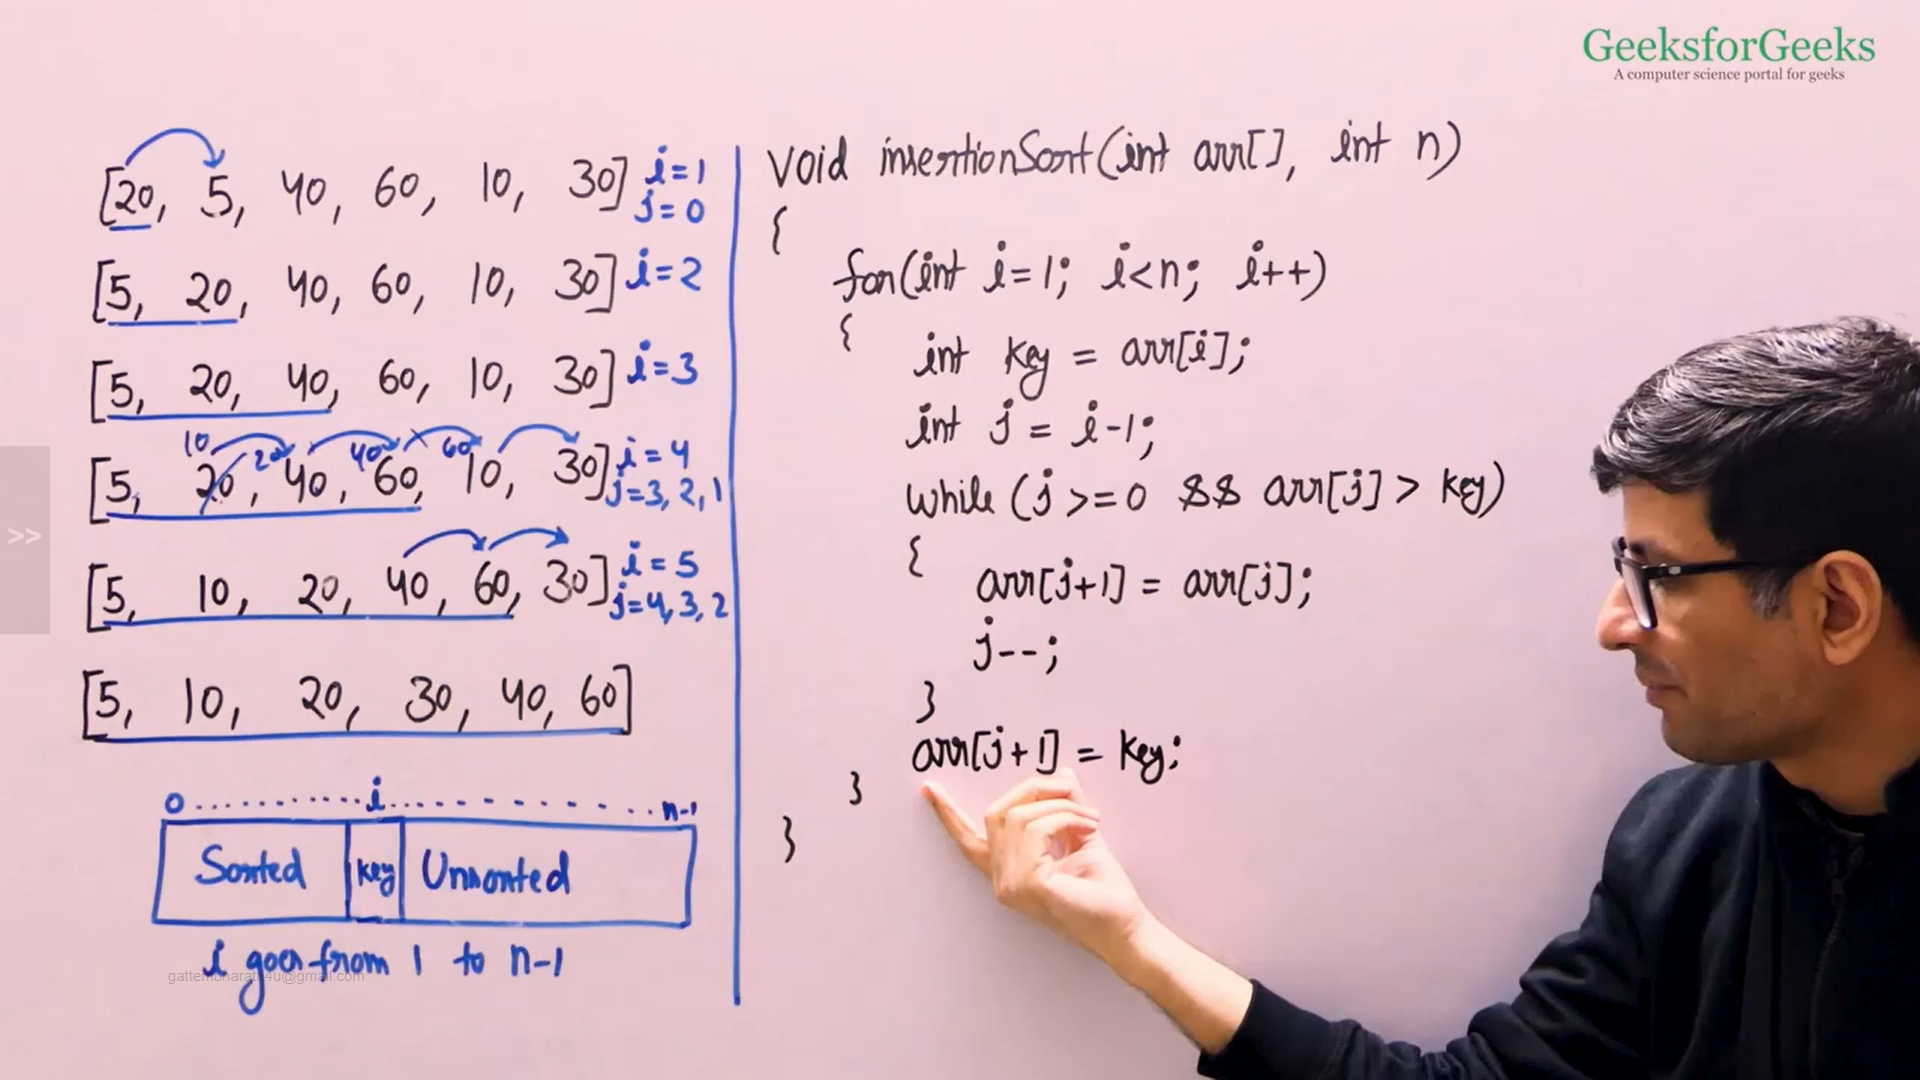 GeeksforGeeks
A computer science portal for geeks
[20, 5, 40, 60, 10, 30] i=1
j=0
[5, 20, 40, 60, 10, 30] i=2
[5, 20, 40, 60, 10, 30] i=3
10 20 40 60
[5, 20, 40, 60, 10, 30] i=4
j=3, 2, 1
[5, 10, 20, 40, 60, 30] i=5
j=4, 3, 2
[5, 10, 20, 30, 40, 60]
0 . . . . . . . . . . i . . . . . . . . . . n-1
Sorted key Unsorted
i goes from 1 to n-1
gattembharath4u@gmail.com
void insertionSort(int arr[], int n)
{
for(int i=1; i<n; i++)
{
int key = arr[i];
int j = i-1;
while (j >=0 && arr[j] > key)
{
arr[j+1] = arr[j];
j--;
}
arr[j+1] = key;
}
}
>>